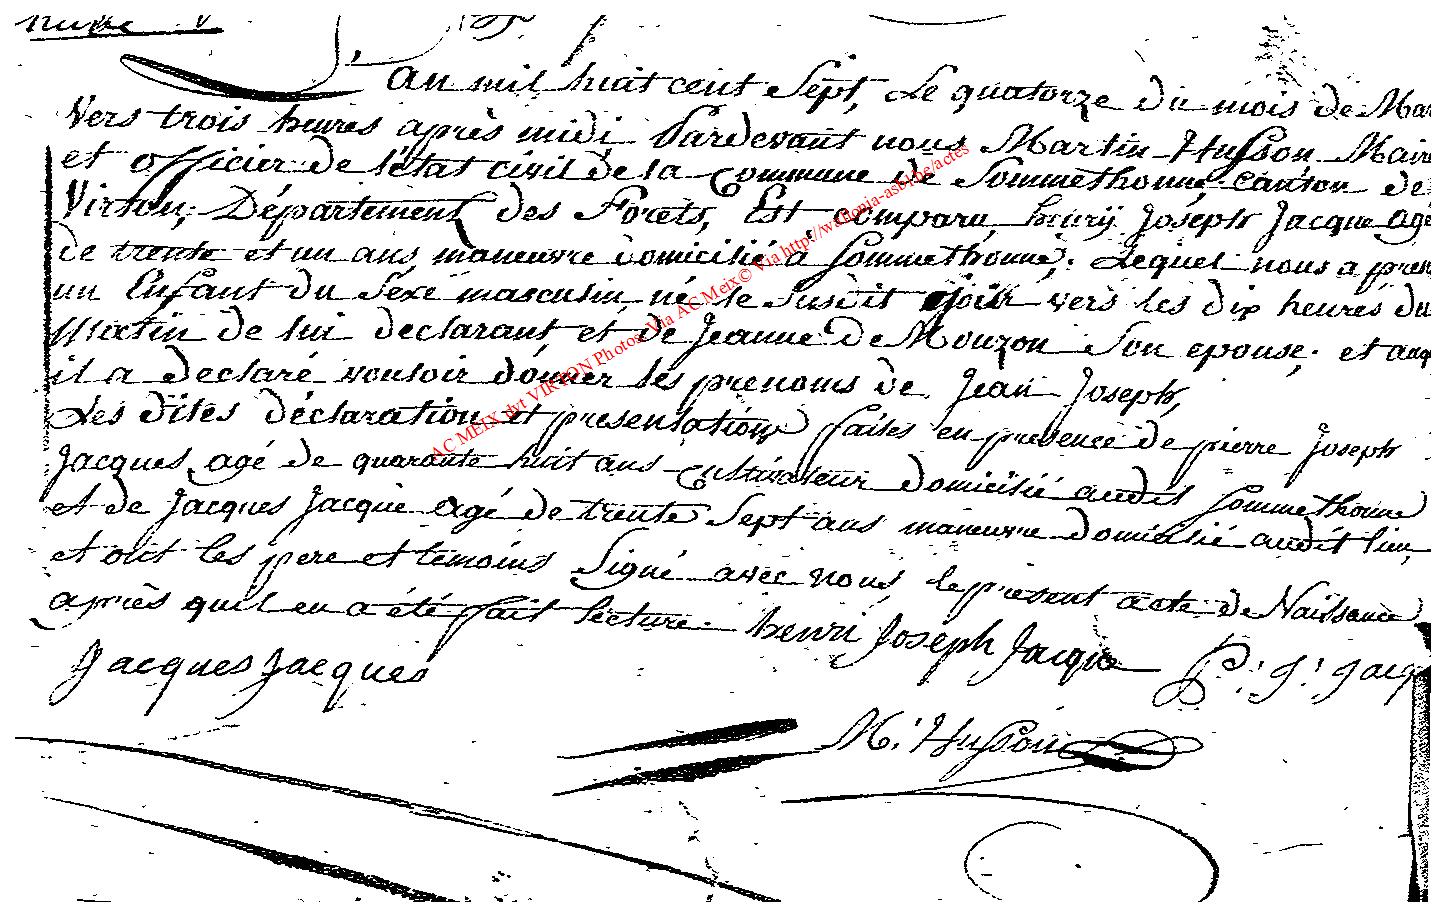 L'an mil huit cent Sept, Le quatorze du mois de Mar
Vers trois heures après midi Pardevant nous Martin Husson Maire
et officier de l'état civil de la Commune de Sommethonne, canton de
Virton, Département des Forêts, Est comparu, henrÿ Joseph Jacque agé
de trente et un ans, maneuvre domicilié à Sommethonne; Lequel nous a presen
un Enfant du Sexe masculin, né le susdit jour vers les dix heures du
Matin de lui declarant, et de Jeanne de Mouzon Son epouse; et auq
il a declaré vouloir donner les prenoms de Jean Joseph,
Les dites déclaration et presentation faites en presence de pierre Joseph
Jacques, agé de quarante huit ans Cultivateur domicilié audit Sommethonne
et de Jacques Jacque agé de trente Sept ans maneuvre domicilié audit lieu,
et ont les pere et temoins Signé avec nous, le présent acte de Naissance
après qu'il en a été fait lecture. henri Joseph Jacque P. J. Jacq
Jacques Jacques
M. Husson
AC MEIX dvt VIRTON Photos Via AC Meix© Via http://wallonia-asbl.be/actes